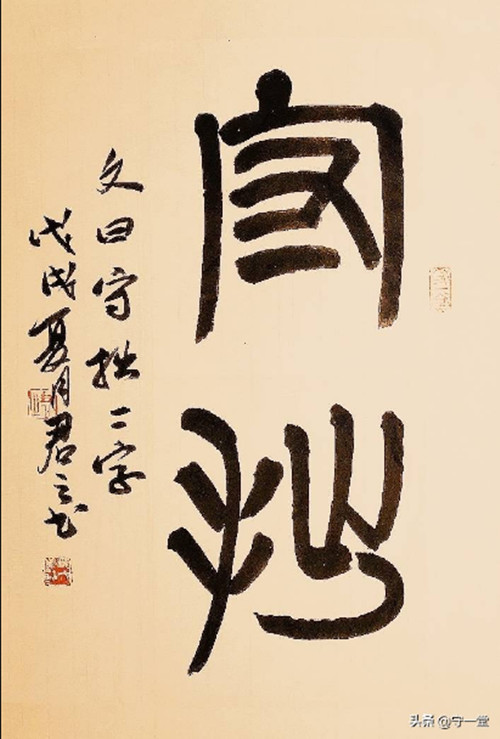 守拙
文曰守拙二字
戊戌夏月君之书
头条 @守一堂